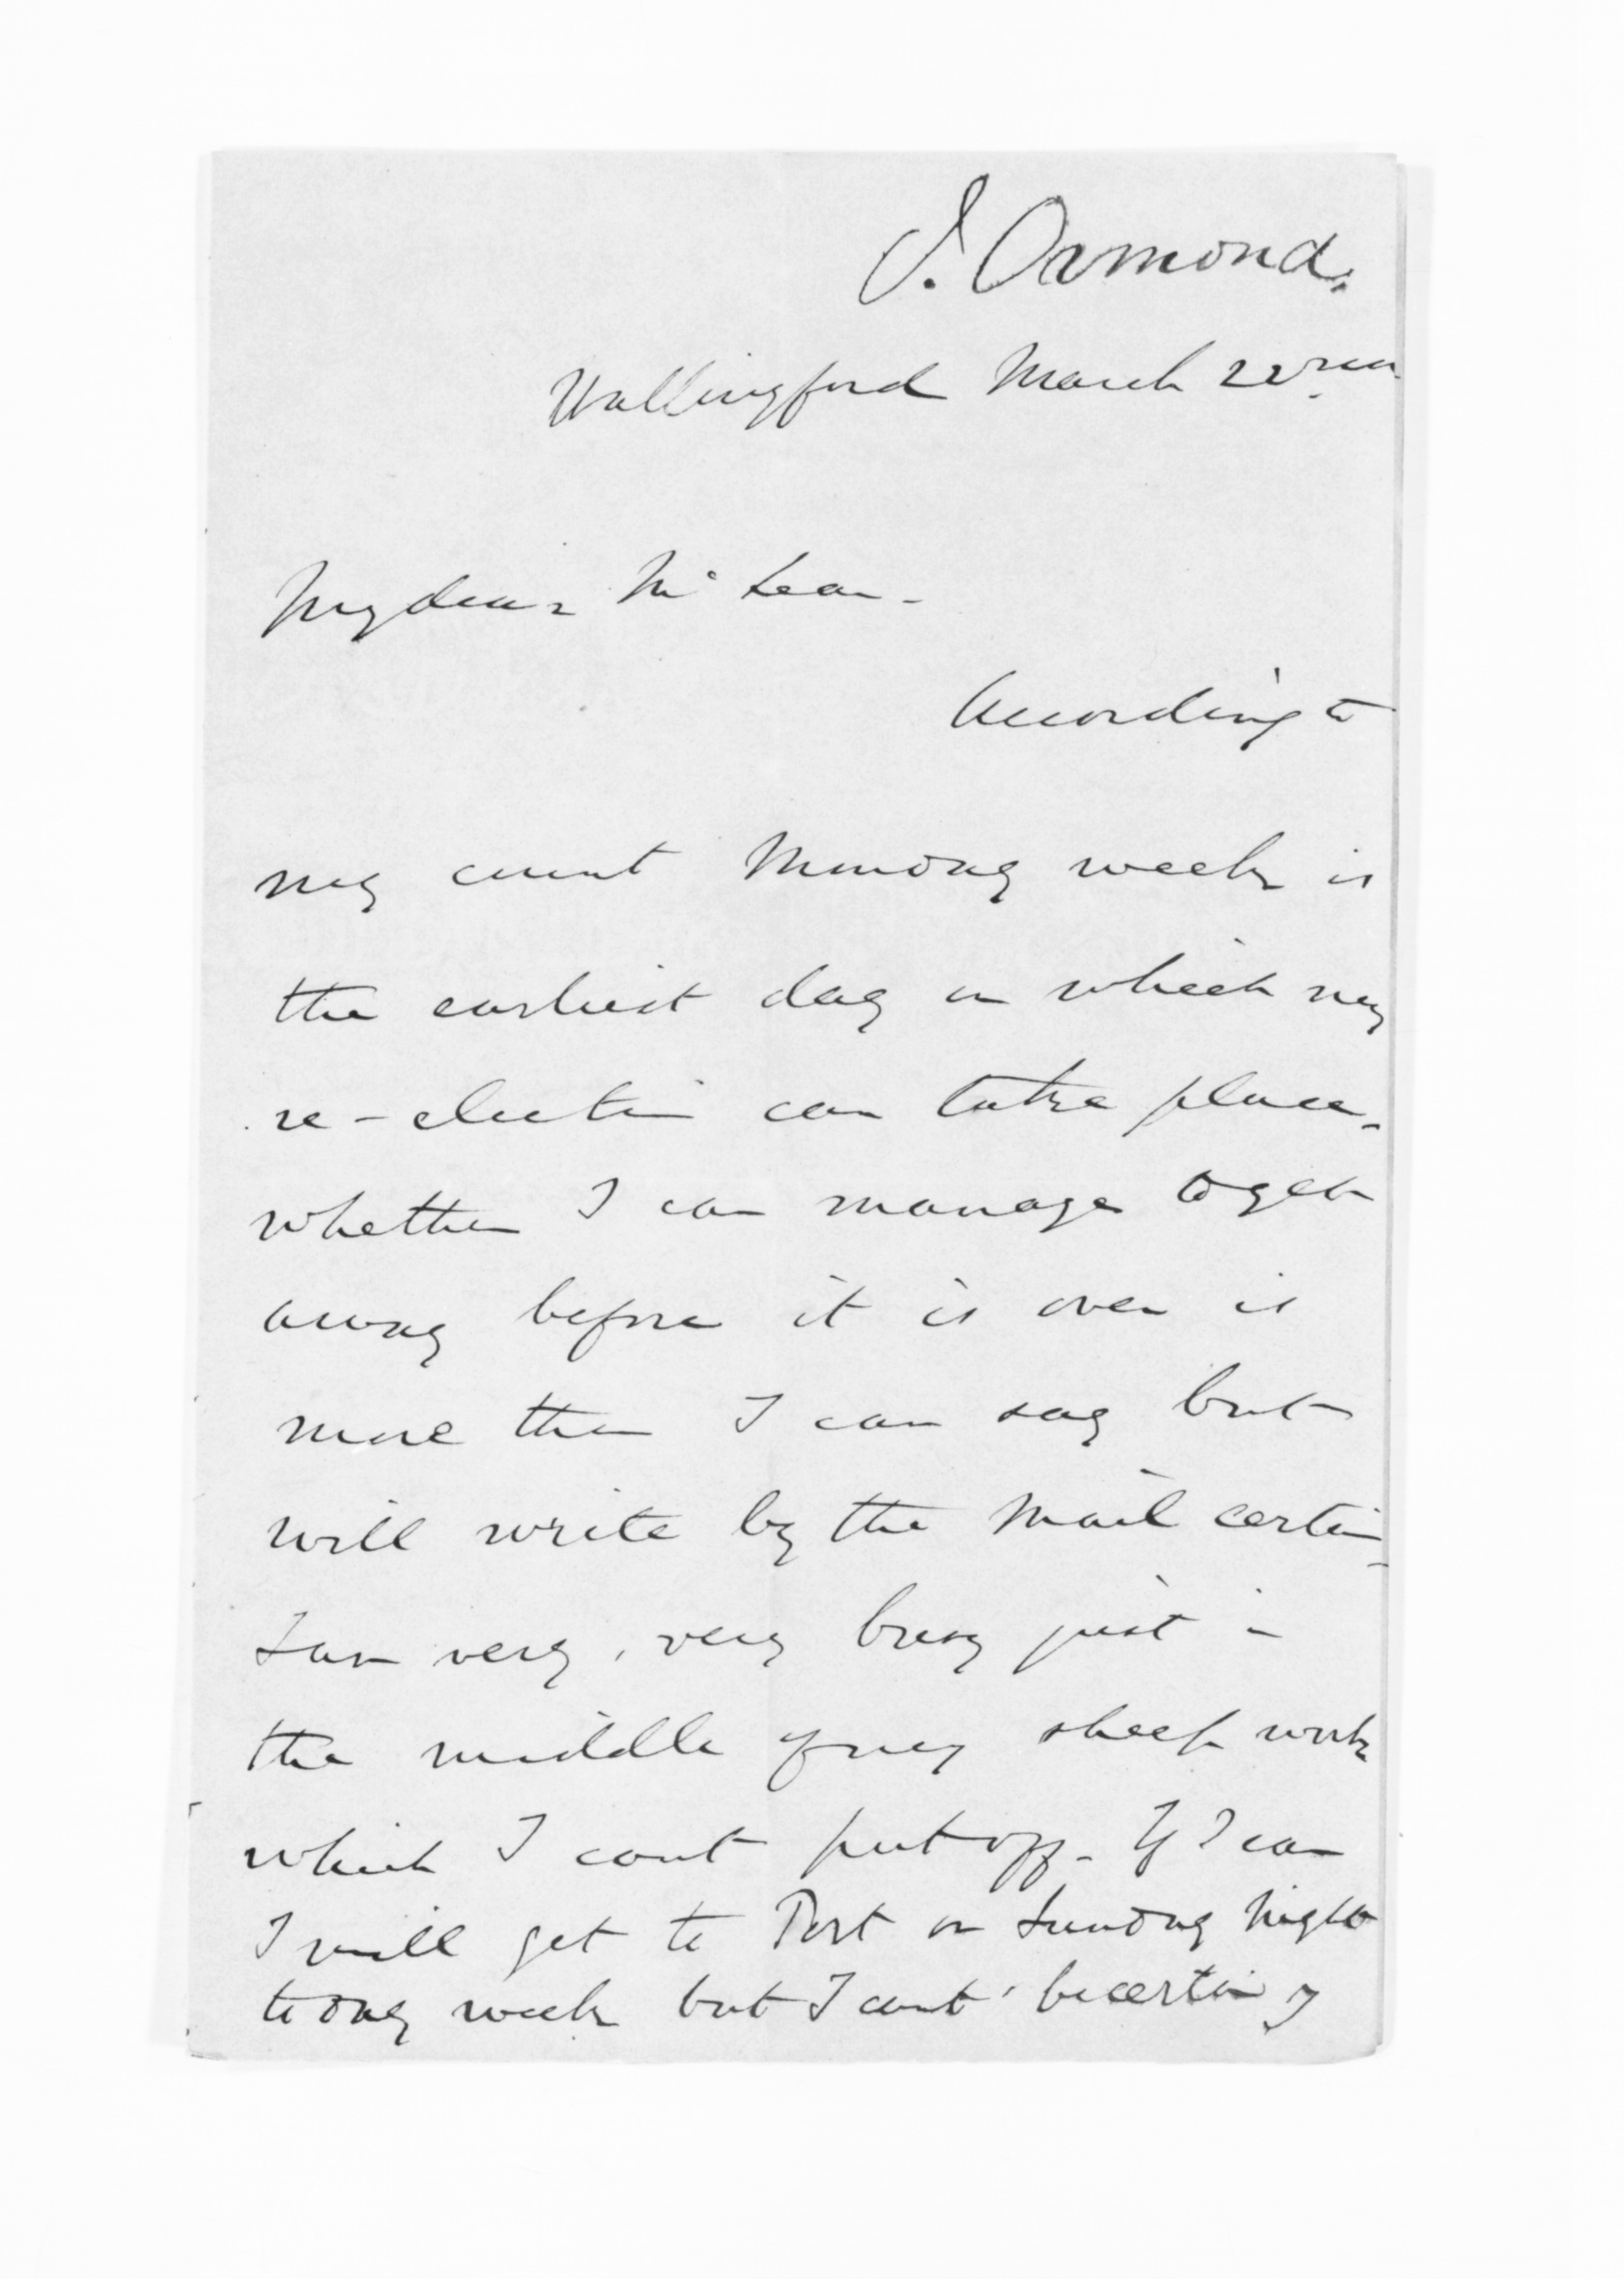 J. Ormond.
Wallingford March 22nd
My dear McLean -
According to
my count Monday week is
the earliest day on which my
re-election can take place -
whether I can manage to get
away before it is over is
more than I can say but
will write by the Mail certain -
I am very, very busy just in
the middle of my sheep work
which I cant put off - If I can
I will get to Port on Sunday night
to day week but I cant be certain of